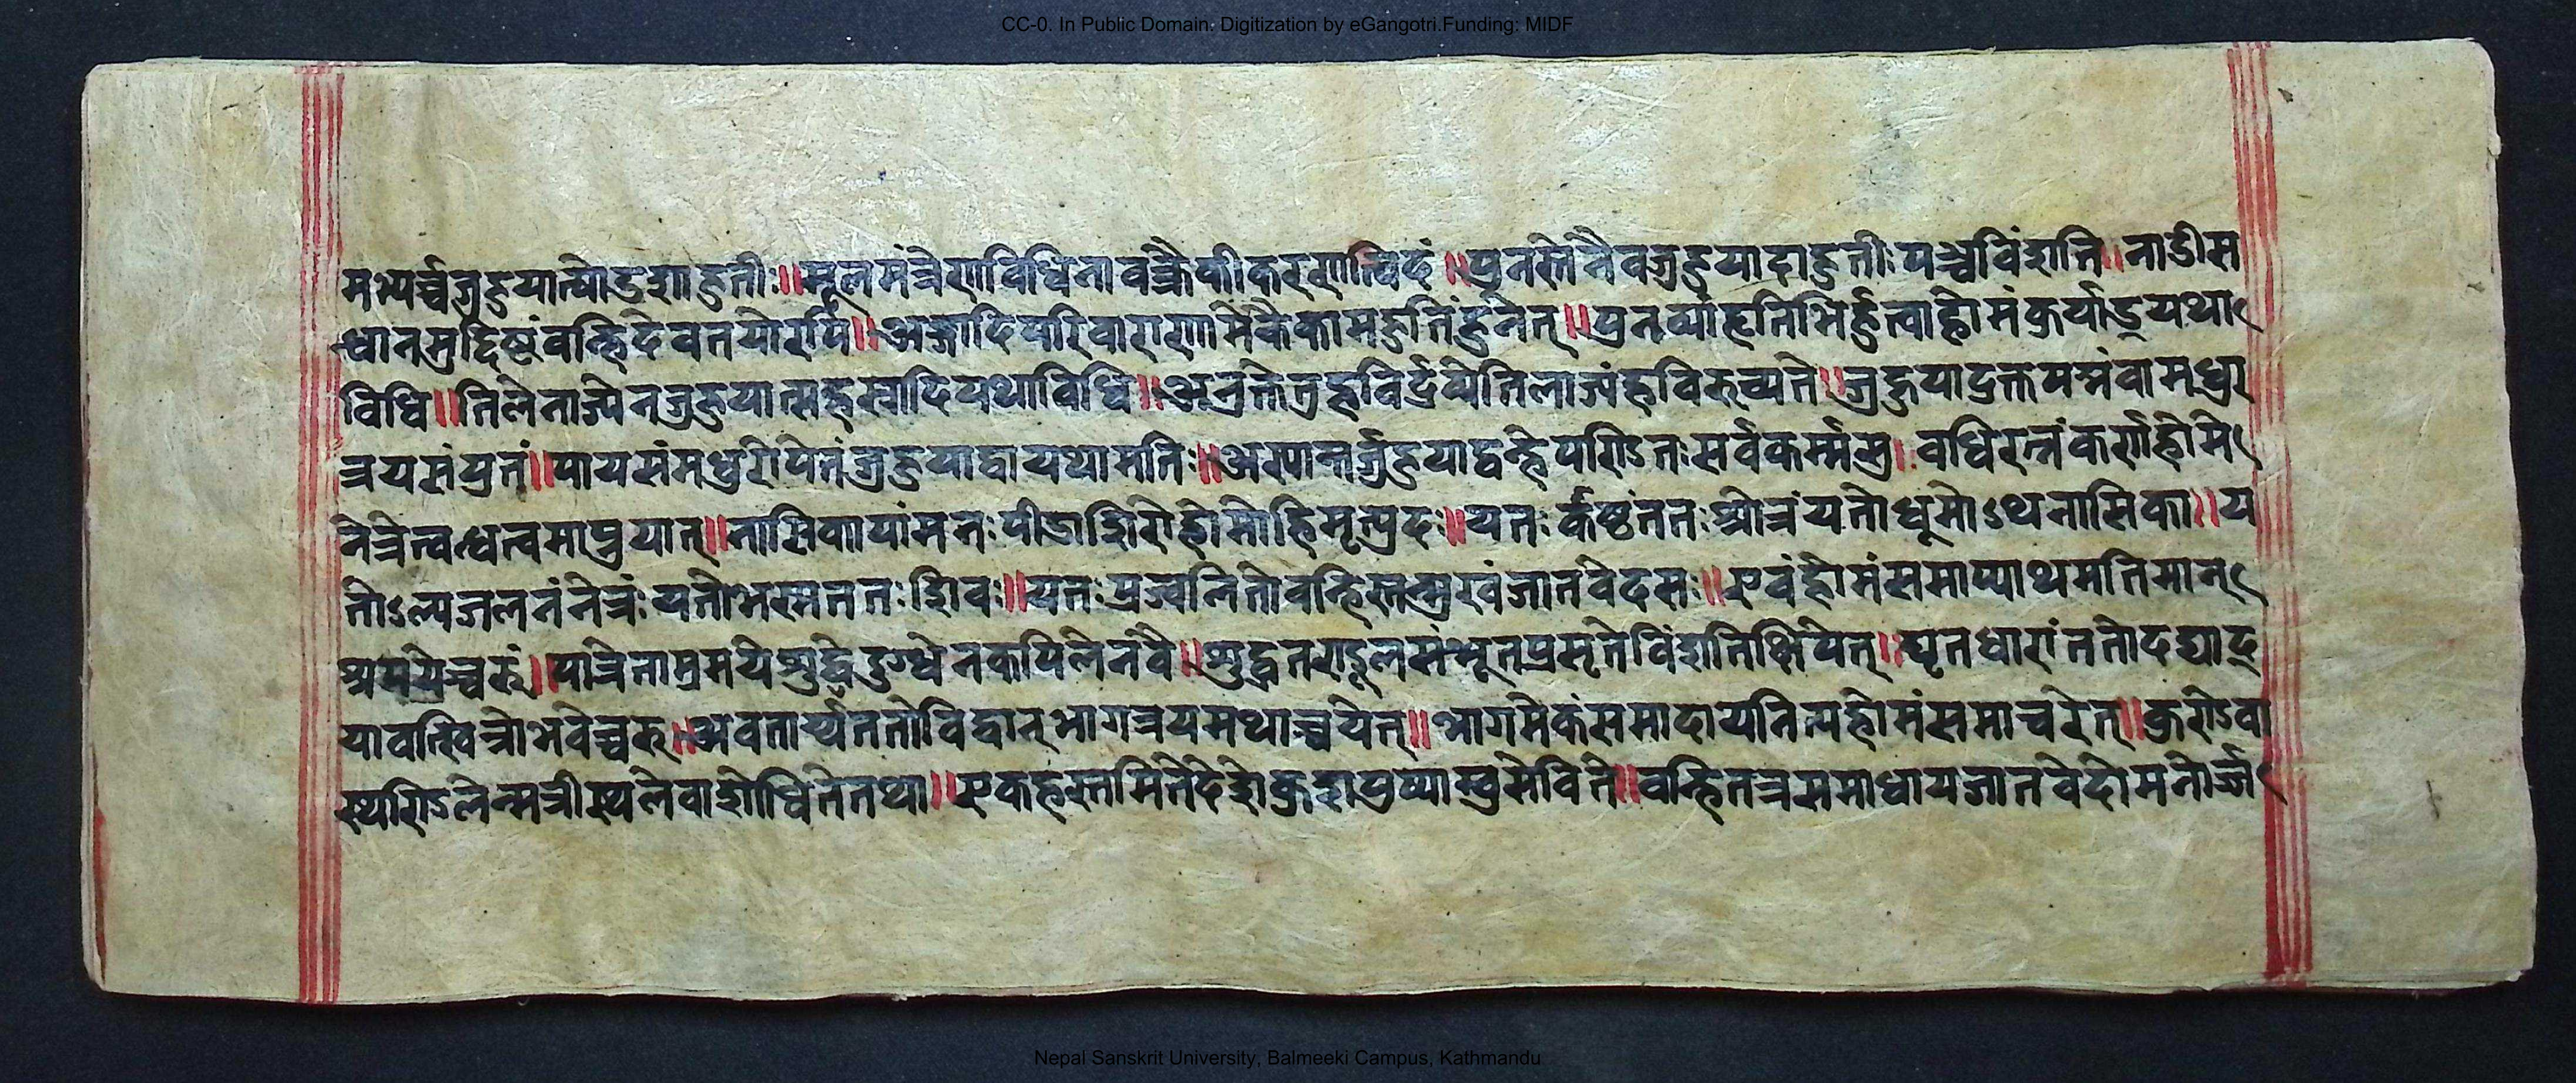 CC-0. In Public Domain. Digitization by eGangotri.Funding: MIDF
मभ्यर्च्चजुहुयात्षोडशाहुतीः॥मूलमंत्रेणविधिनावक्त्रैकीकरणन्त्विदं॥पुनस्तेनैवजुहुयादाहुतीःपञ्चविंशति॥नाडीस
न्धानमुद्दिष्टंवन्हिदेवतयोरपि॥अङ्गादिपरिवाराणामेकैकामाहुतिंहुनेत्॥पुनर्व्याहृतिभिर्हुत्वाहोमंकुर्याद्यथा
विधि॥तिलेनाज्येनजुहुयात्सहस्रादियथाविधि॥अनुक्तेतुहविर्द्रव्येतिलाज्यंहविरुच्यते॥जुहुयाद्रक्तपद्मंवामधुर
त्रयसंयुतं॥पायसंमधुरोपेतंजुहुयाद्वायथामति॥अस्यान्तर्जुहुयाद्वन्हेपरिऽतःसर्वकर्म्मसु॥वधिरत्नंकर्णहोमे
नेत्रेत्वन्धत्वमाप्नुयात्॥नासिकायांमनःपीडाशिरोहोमोहिमृत्युप्रदः॥यतःकाष्ठंततःश्रोत्रंयतोधूमोऽथनासिका॥य
तोऽल्पजलनंनेत्रंयतोभस्मततःशिवः॥यतःप्रज्वलितोवन्हिस्तन्मुखंजातवेदसः॥एवंहोमंसमाप्याथमतिमान्
श्रपयेच्चरुं॥पात्रेताम्रमयेशुद्धेदुग्धेनकपिलेनवै॥शुद्धतण्डूलसंभूतप्रसृतेविंशतिक्षिपेत्॥घृतधारांततोदद्याद्
यावत्स्विन्नोभवेच्चरु॥अवतार्य्यततोविद्वान्भागत्रयमथाच्चयेत्॥भागमेकंसमादायनित्यहोमंसमाचरेत्॥कुरोऽवा
स्थरिऽलेन्मत्रीस्थलेवाशोधितेतथा॥एकहस्तमितेदेशेकुशपुष्पाम्बुसेविते॥वन्हितत्रसमाधायजातवेदोमनोर्ज्जा
Nepal Sanskrit University, Balmeeki Campus, Kathmandu